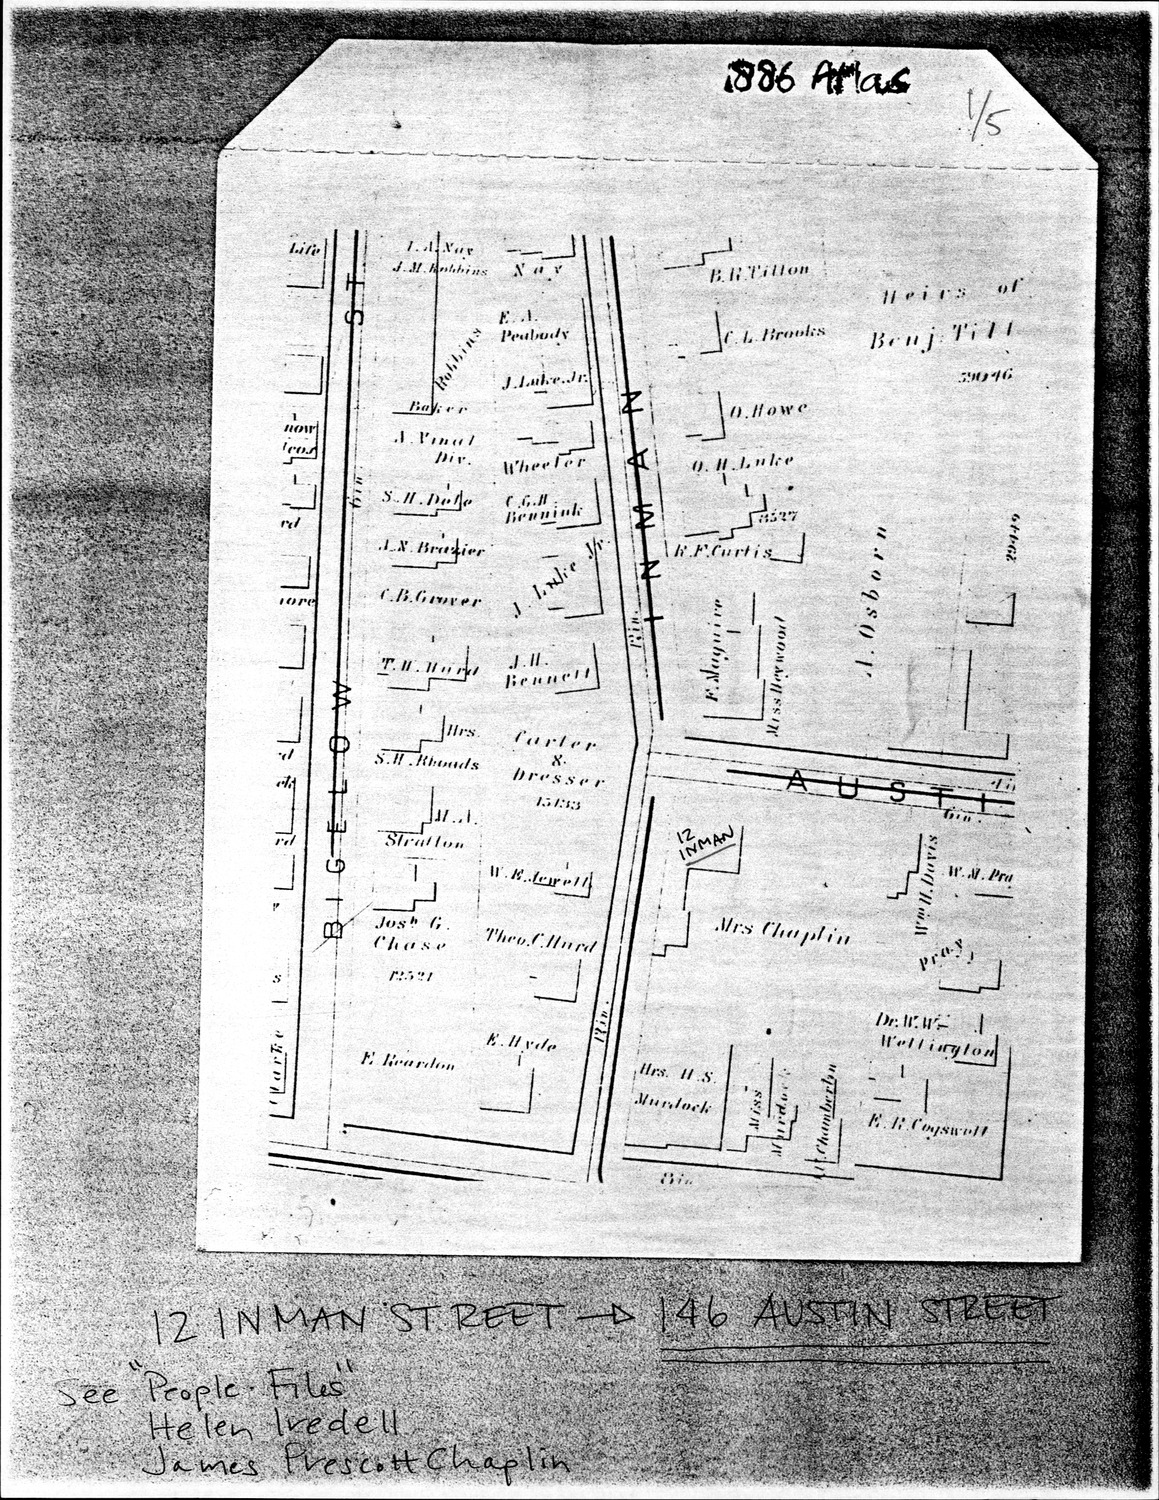 1886 Atlas
1/5
Life
BIGELOW ST
6in.
I.A. Nay
J.M. Robbins
Robbins
Baker
A. Vinal
Div.
S.H. Dole
A.N. Brazier
C.B. Grover
T.H. Hurd
Hrs.
S.H. Rhoads
M.A.
Stratton
Josh G.
Chase
12521
E. Reardon
Nay
E.A.
Peabody
J. Luke, Jr.
Wheeler
C.G.H.
Bennink
J. Luke Jr.
J.H.
Bennett
Carter
&
Dresser
15433
W.E. Jewell
Theo. C. Hurd
E. Hyde
INMAN
8in.
8in.
B.R. Tilton
C.L. Brooks
O. Howe
O.H. Luke
8527
R.F. Curtis
F. Maguire
Miss Heywood
Heirs of
Benj. Till
39046
A. Osborn
39449
AUSTI
4in
6in.
12
INMAN
Mrs Chaplin
Wm H. Davis
W.M. Pra
Pray
Dr. W.W.
Wellington
Hrs. H.S.
Murdock
Miss
Murdock
Chamberlin
E.R. Cogswell
8in.
12 INMAN STREET → 146 AUSTIN STREET
See "People Files"
Helen Iredell
James Prescott Chaplin